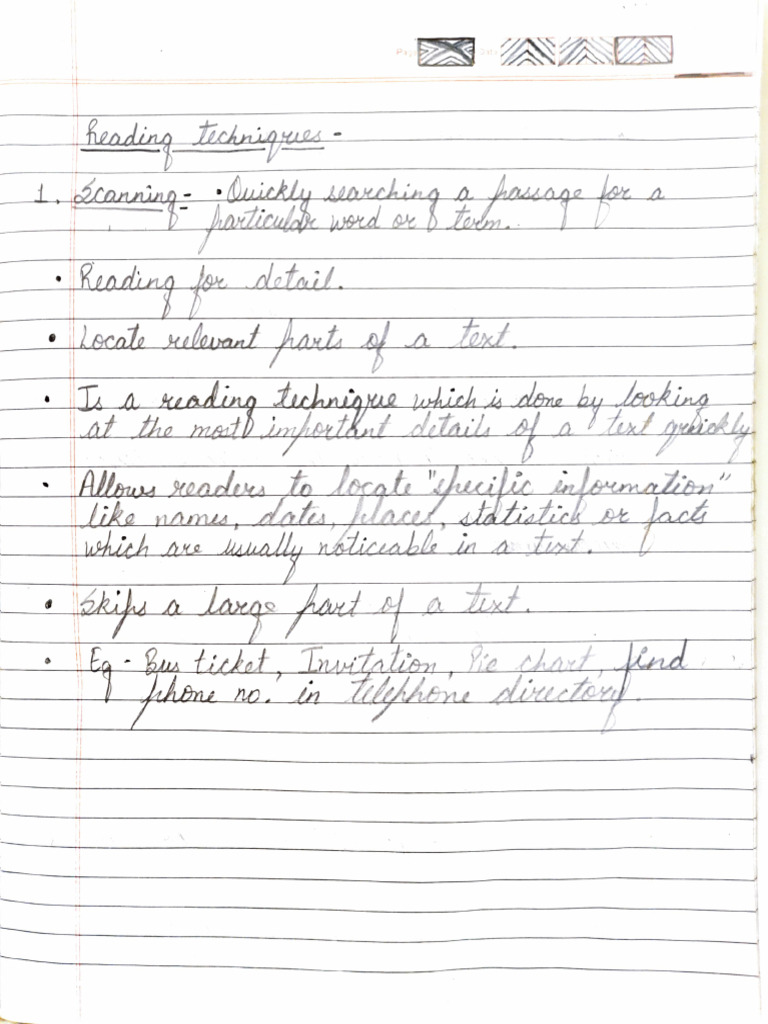 Reading techniques -
1. Scanning - • Quickly searching a passage for a
particular word or term.
• Reading for detail.
• Locate relevant parts of a text.
• Is a reading technique which is done by looking
at the most important details of a text quickly
• Allows readers to locate "specific information"
like names, dates, places, statistics or facts
which are usually noticeable in a text.
• Skips a large part of a text.
• Eg - Bus ticket, Invitation, Pie chart, find
phone no. in telephone directory.